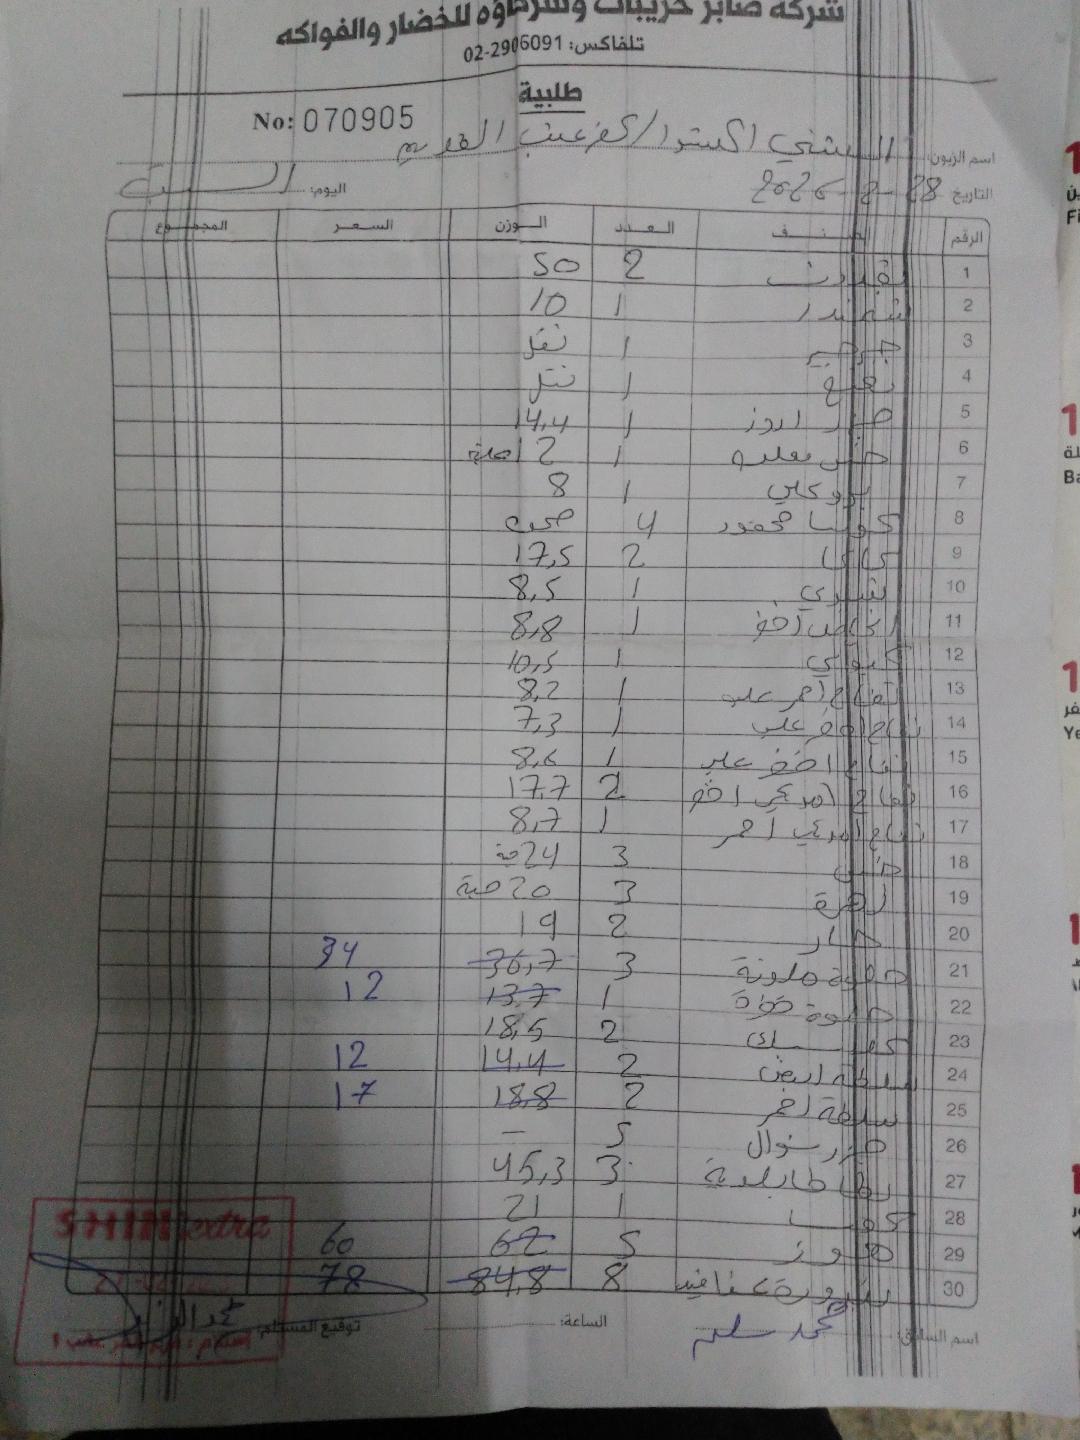 شركة صابر حريبات وشركاؤه للخضار والفواكه
تلفاكس: 02-2906091
طلبية
No: 070905
اسم الزبون: الشني اكسترا/كفر عقب القديم
التاريخ 28 - 2 - 2026 اليوم: السبت
الرقم الصنف العدد الوزن السعر المجموع
1 2 50
2 شمندر 1 10
3 جرجير 1 نقل
4 نعنع 1 نقل
5 1 14,4
6 1 2
7 بروكلي 1 8
8 كوسا محفور 4 صحن
9 كاكا 2 17,5
10 1 8,5
11 اجاص اخضر 1 8,8
12 كيوي 1 10,5
13 تفاح احمر علب 1 8,2
14 تفاح اصفر علب 1 7,3
15 تفاح اخضر علب 1 8,6
16 تفاح امريكي اخضر 2 17,7
17 تفاح امريكي احمر 1 8,7
18 خس 3 24 حبة
19 زهرة 3 20 حبة
20 خيار 2 19
21 حلوة ملونة 3 36,7 34
22 حلوة 1 13,7 12
23 2 18,5
24 سلطة ابيض 2 14,4 12
25 سلطة احمر 2 18,8 17
26 جزر شوال 5 –
27 بطاطا بلدية 3 45,3
28 كوسا 1 21
29 موز 5 62 60
30 بندورة عناقيد 8 84,8 78
اسم السائق: محمد سليم الساعة: توقيع المستلم:
SHINI extra